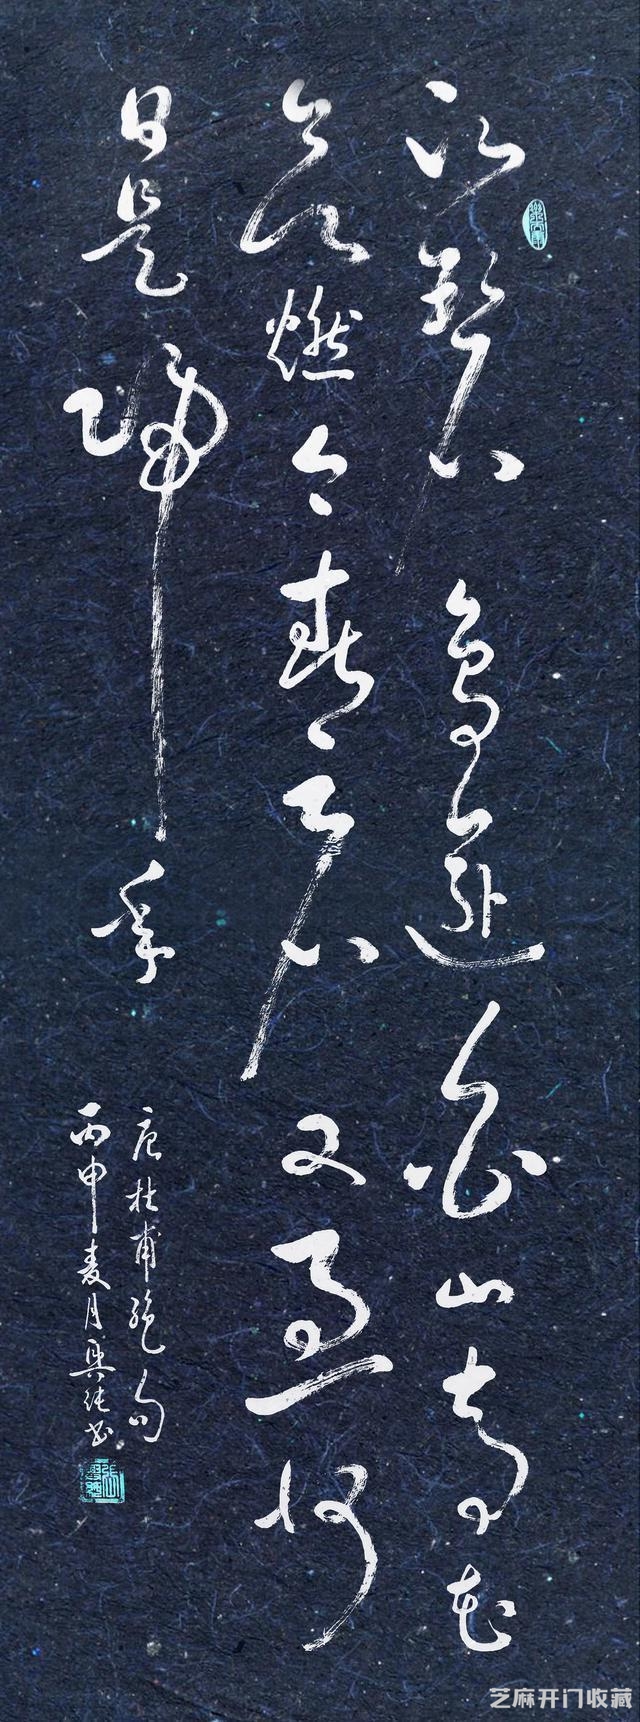 江碧鳥逾白山青花
欲燃今春看又過何
日是歸年
唐杜甫絕句
丙申麦月書
芝麻开门收藏